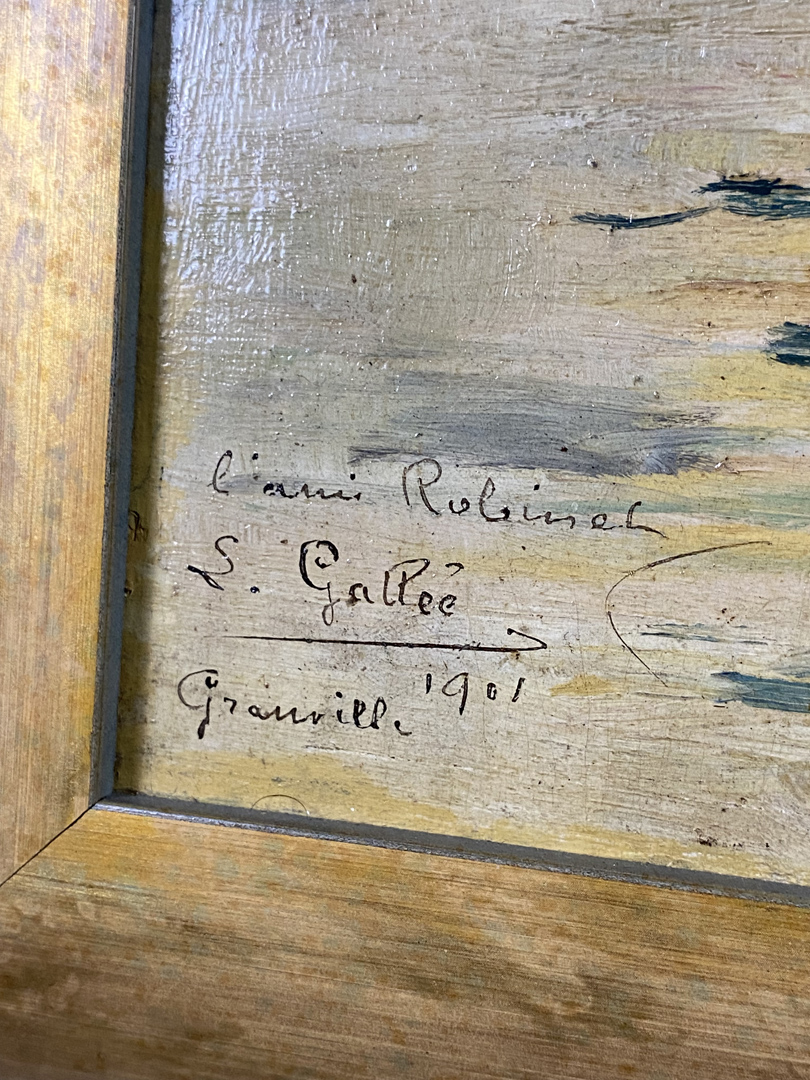 l'ami Robinet
S. Gallée
Granville 1901